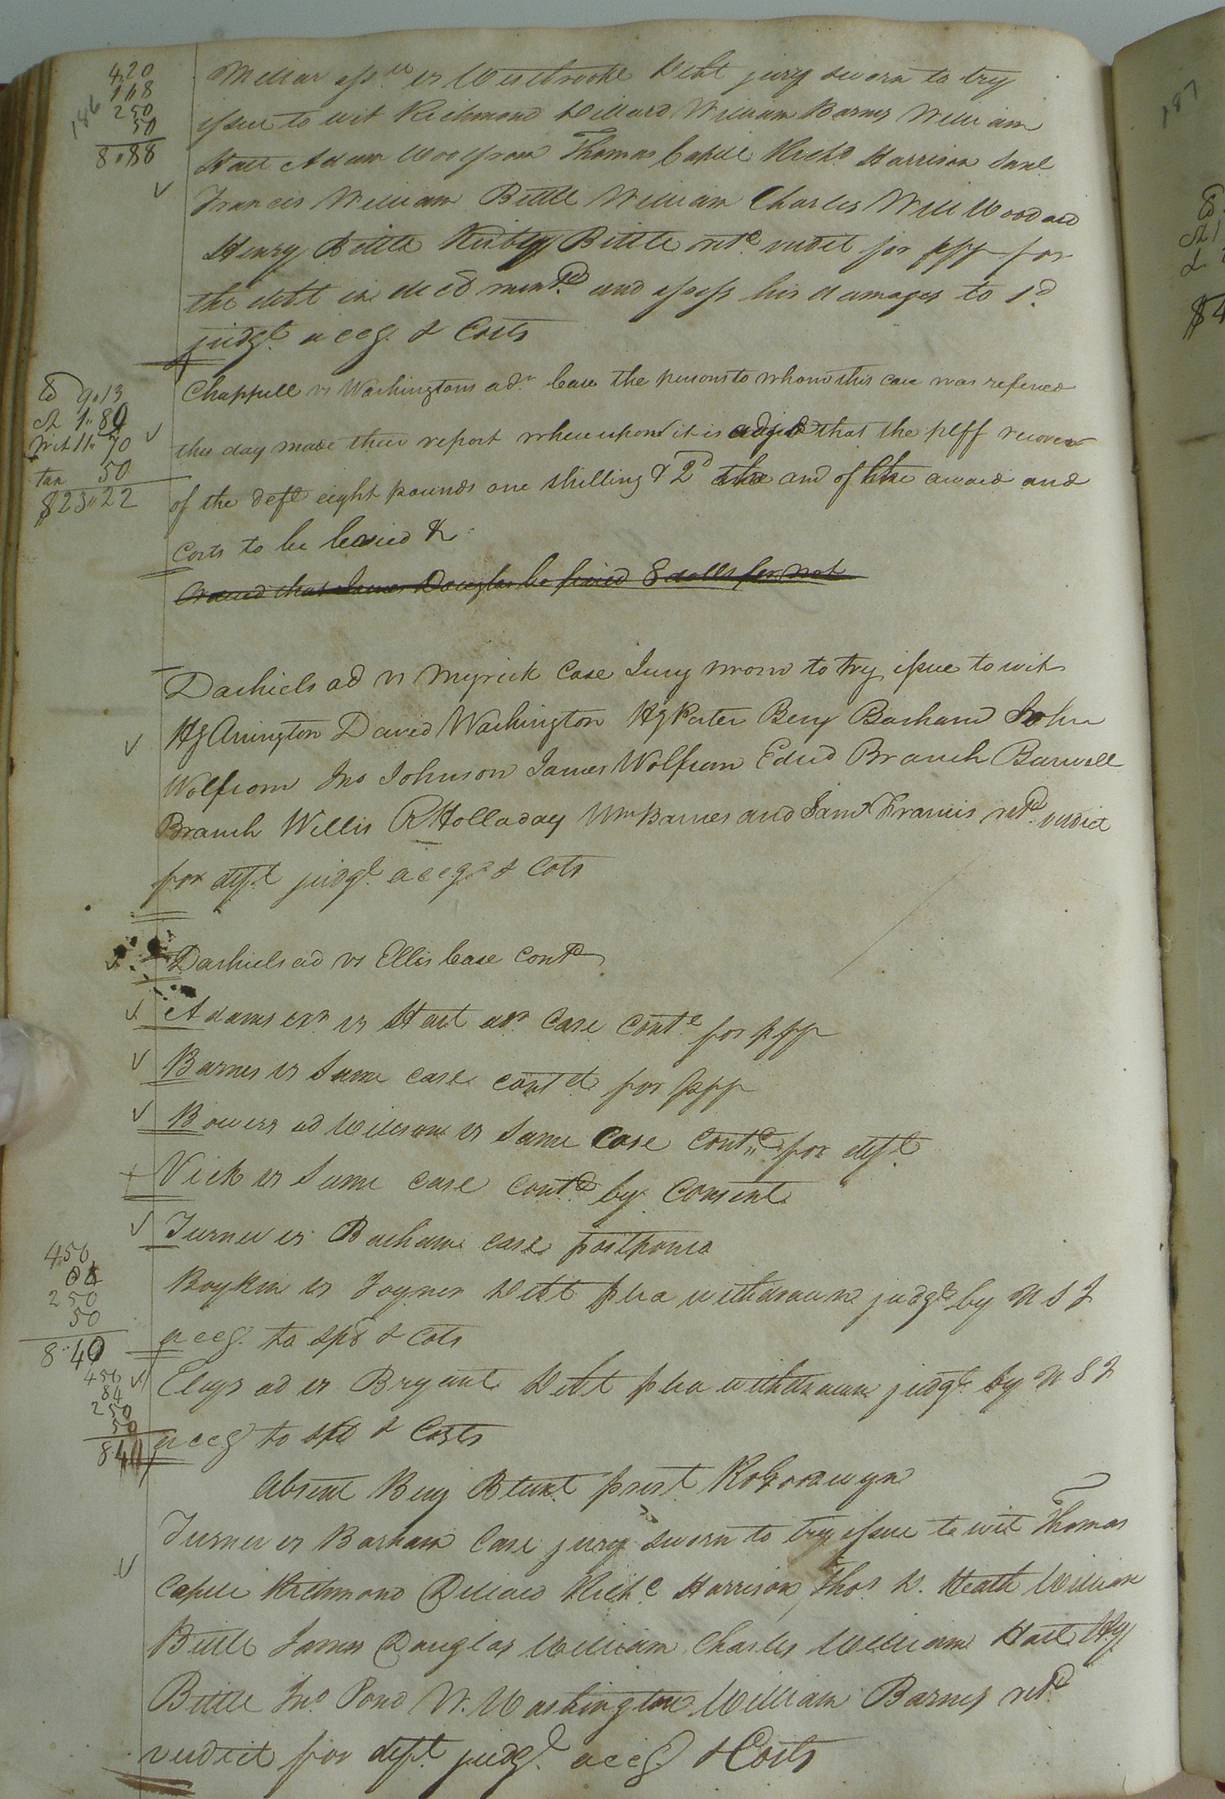 186
4.20
168
250
50
8.88
Millar assee vs Westbrooke Debt jury sworn to try
issue to wit Richmond Dillard William Barnes William
Hall Adam Woolfrom Thomas Capell Richd Harrison Saml
Francis William Bittle William Charles Will Woodard
Henry Bittle Kirby Bittle retd verdit for plff for
the debt in decl mentd and assess his damages to 1d
judgt accg & Costs
9.13
1.84
70
tax 50
$23.22
Chappell vs Washingtons adr Case the persons to whom this case was refered
this day made their report whereupon it is adjd that the plff recover
of the deft eight pounds one shilling & 2d the amd of the award and
Costs to be levied &c
Ordered that James Douglas be fined 8 dolls for not
Dashiels ad vs Myrick Case Jury sworn to try issue to wit
Hy Arrington David Washington Hy Porter Benj Barham John
Wolfrom Jno Johnson James Wolfrom Edwd Branch Burwell
Branch Willis R Holladay Wm Barnes and Saml Francis retd verdict
for deft judgt accg & Cots
Dashiels ad vs Ellis Case Contd
Adams exr vs Hart adr Case contd for plff
Barnes vs Same case contd for plff
Bowers ad Wilkerson vs Same Case contd for deft
Vick vs Same case contd by Consent
Turner vs Barham case postponed
450
250
50
8.40
Boykin vs Joyner Debt plea withdrawn judgt by N S J
accg to spe & Cots
450
84
250
50
840
Clays ad vs Bryant Debt plea withdrawn judgt by N S J
accg to spe & Costs
Absent Benj Blunt prest Ro Goodwyn
Turner vs Barham Case jury sworn to try issue to wit Thomas
Capell Richmond Dillard Richd Harrison Thos W. Heath William
Bittle James Douglas William Charles William Hart Hy
Bittle Jno Pond W. Washington William Barnes retd
verdict for deft judgt accg & Costs
187